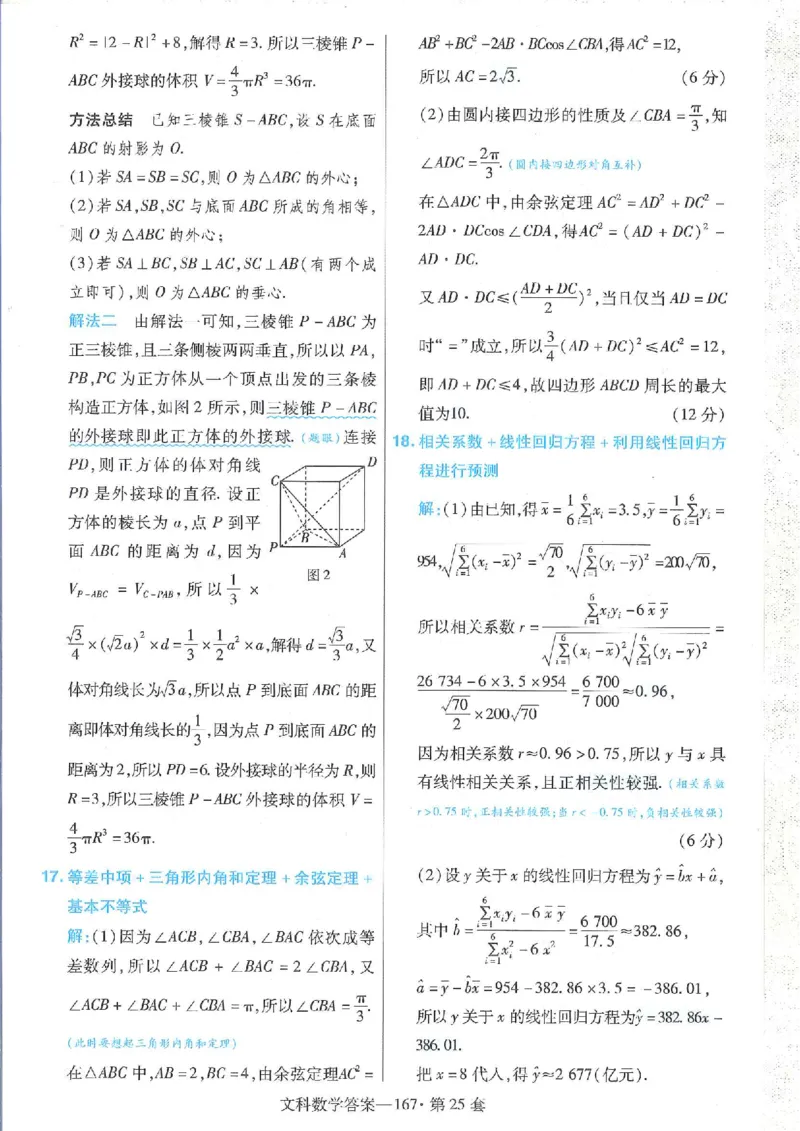 R² = |2 − R|² + 8,解得 R = 3. 所以三棱锥 P −
ABC 外接球的体积 V = 4/3 πR³ = 36π.
方法总结 已知三棱锥 S − ABC,设 S 在底面
ABC 的射影为 O.
(1)若 SA = SB = SC,则 O 为△ABC 的外心;
(2)若 SA,SB,SC 与底面 ABC 所成的角相等,
则 O 为△ABC 的外心;
(3)若 SA⊥BC,SB⊥AC,SC⊥AB(有两个成
立即可),则 O 为△ABC 的垂心.
解法二 由解法一可知,三棱锥 P − ABC 为
正三棱锥,且三条侧棱两两垂直,所以以 PA,
PB,PC 为正方体从一个顶点出发的三条棱
构造正方体,如图 2 所示,则三棱锥 P − ABC
的外接球即此正方体的外接球.(题眼)连接
PD,则正方体的体对角线
PD 是外接球的直径. 设正
方体的棱长为 a,点 P 到平
面 ABC 的距离为 d,因为
V_{P−ABC} = V_{C−PAB},所以 1/3 ×
D
C
B
P
A
图2
√3/4 × (√2a)² × d = 1/3 × 1/2 a² × a,解得 d = √3/3 a,又
体对角线长为√3a,所以点 P 到底面 ABC 的距
离即体对角线长的 1/3,因为点 P 到底面 ABC 的
距离为 2,所以 PD = 6. 设外接球的半径为 R,则
R = 3,所以三棱锥 P − ABC 外接球的体积 V =
4/3 πR³ = 36π.
17. 等差中项 + 三角形内角和定理 + 余弦定理 +
基本不等式
解:(1)因为∠ACB,∠CBA,∠BAC 依次成等
差数列,所以∠ACB + ∠BAC = 2∠CBA,又
∠ACB + ∠BAC + ∠CBA = π,所以∠CBA = π/3.
(此时要想起三角形内角和定理)
在△ABC 中,AB = 2,BC = 4,由余弦定理AC² =
AB² + BC² − 2AB · BCcos∠CBA,得AC² = 12,
所以 AC = 2√3. (6 分)
(2)由圆内接四边形的性质及∠CBA = π/3,知
∠ADC = 2π/3.(圆内接四边形对角互补)
在△ADC 中,由余弦定理 AC² = AD² + DC² −
2AD · DCcos∠CDA,得AC² = (AD + DC)² −
AD · DC.
又 AD · DC ≤ ((AD + DC)/2)²,当且仅当 AD = DC
时“ = ”成立,所以 3/4 (AD + DC)² ≤ AC² = 12,
即 AD + DC ≤ 4,故四边形 ABCD 周长的最大
值为10. (12 分)
18. 相关系数 + 线性回归方程 + 利用线性回归方
程进行预测
解:(1)由已知,得 x̄ = 1/6 ∑_{i=1}^{6} x_i = 3.5,ȳ = 1/6 ∑_{i=1}^{6} y_i =
954,√(∑_{i=1}^{6} (x_i − x̄)²) = √70/2,√(∑_{i=1}^{6} (y_i − ȳ)²) = 200√70,
所以相关系数 r = (∑_{i=1}^{6} x_i y_i − 6 x̄ ȳ)/(√(∑_{i=1}^{6} (x_i − x̄)²) √(∑_{i=1}^{6} (y_i − ȳ)²)) =
(26 734 − 6 × 3.5 × 954)/(√70/2 × 200√70) = 6 700/7 000 ≈ 0.96,
因为相关系数 r ≈ 0.96 > 0.75,所以 y 与 x 具
有线性相关关系,且正相关性较强.(相关系数
r > 0.75 时,正相关性较强;当 r < −0.75 时,负相关性较强)
(6 分)
(2)设 y 关于 x 的线性回归方程为 ŷ = b̂x + â,
其中 b̂ = (∑_{i=1}^{6} x_i y_i − 6 x̄ ȳ)/(∑_{i=1}^{6} x_i² − 6 x̄²) = 6 700/17.5 ≈ 382.86,
â = ȳ − b̂x̄ = 954 − 382.86 × 3.5 = −386.01,
所以 y 关于 x 的线性回归方程为 ŷ = 382.86x −
386.01.
把 x = 8 代入,得 ŷ ≈ 2 677(亿元).
文科数学答案—167 · 第 25 套